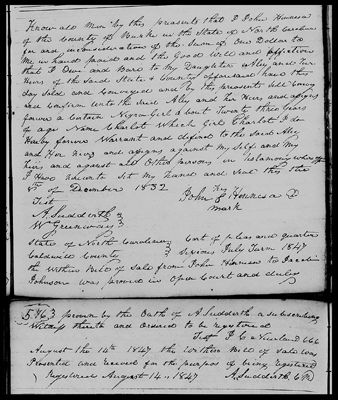 Know all Men by this presents that I John Hennesa
of the County of Burk in the State of North Carolina
for and in consideration of the Sum of One Dollar to
Me in hand paid and the Good Will and affection
that I Owe and bare to My Daughter Aley and her
Heirs of the Said State & County afforesaid have this
day Sold and Conveyed and by the presents Sell Convey
and Confirm unto the said Aley and her Heirs and assigns
forever a Certain Nigro Girl about Twenty three years
of age Name Charlot which Girl Charlot I do
Hereby forever Warrant and defend to the Said Aley
and Her Heirs and assigns against My Self and My
heirs and against all Other persons in testamony whereof
I Have hereunto Set my hand and Seal this the
of December 1832
Test John his Hennesa
mark
A Sudderth
W Greenway
State of North Carolina Court of pleas and quarter
Caldwell County Sessions July Term 1847
the within Bill of Sale from John Hennesa to
Johnson was proved in Open Court and duly
proven by the Oath of A Sudderth a subscribing
Witness thereto and ordered to be registered
Test
August the 14th 1847 the Within Bill of Sale was
Presented and received for the purpose of being registered
Registered August 14 1847 A. Sudderth